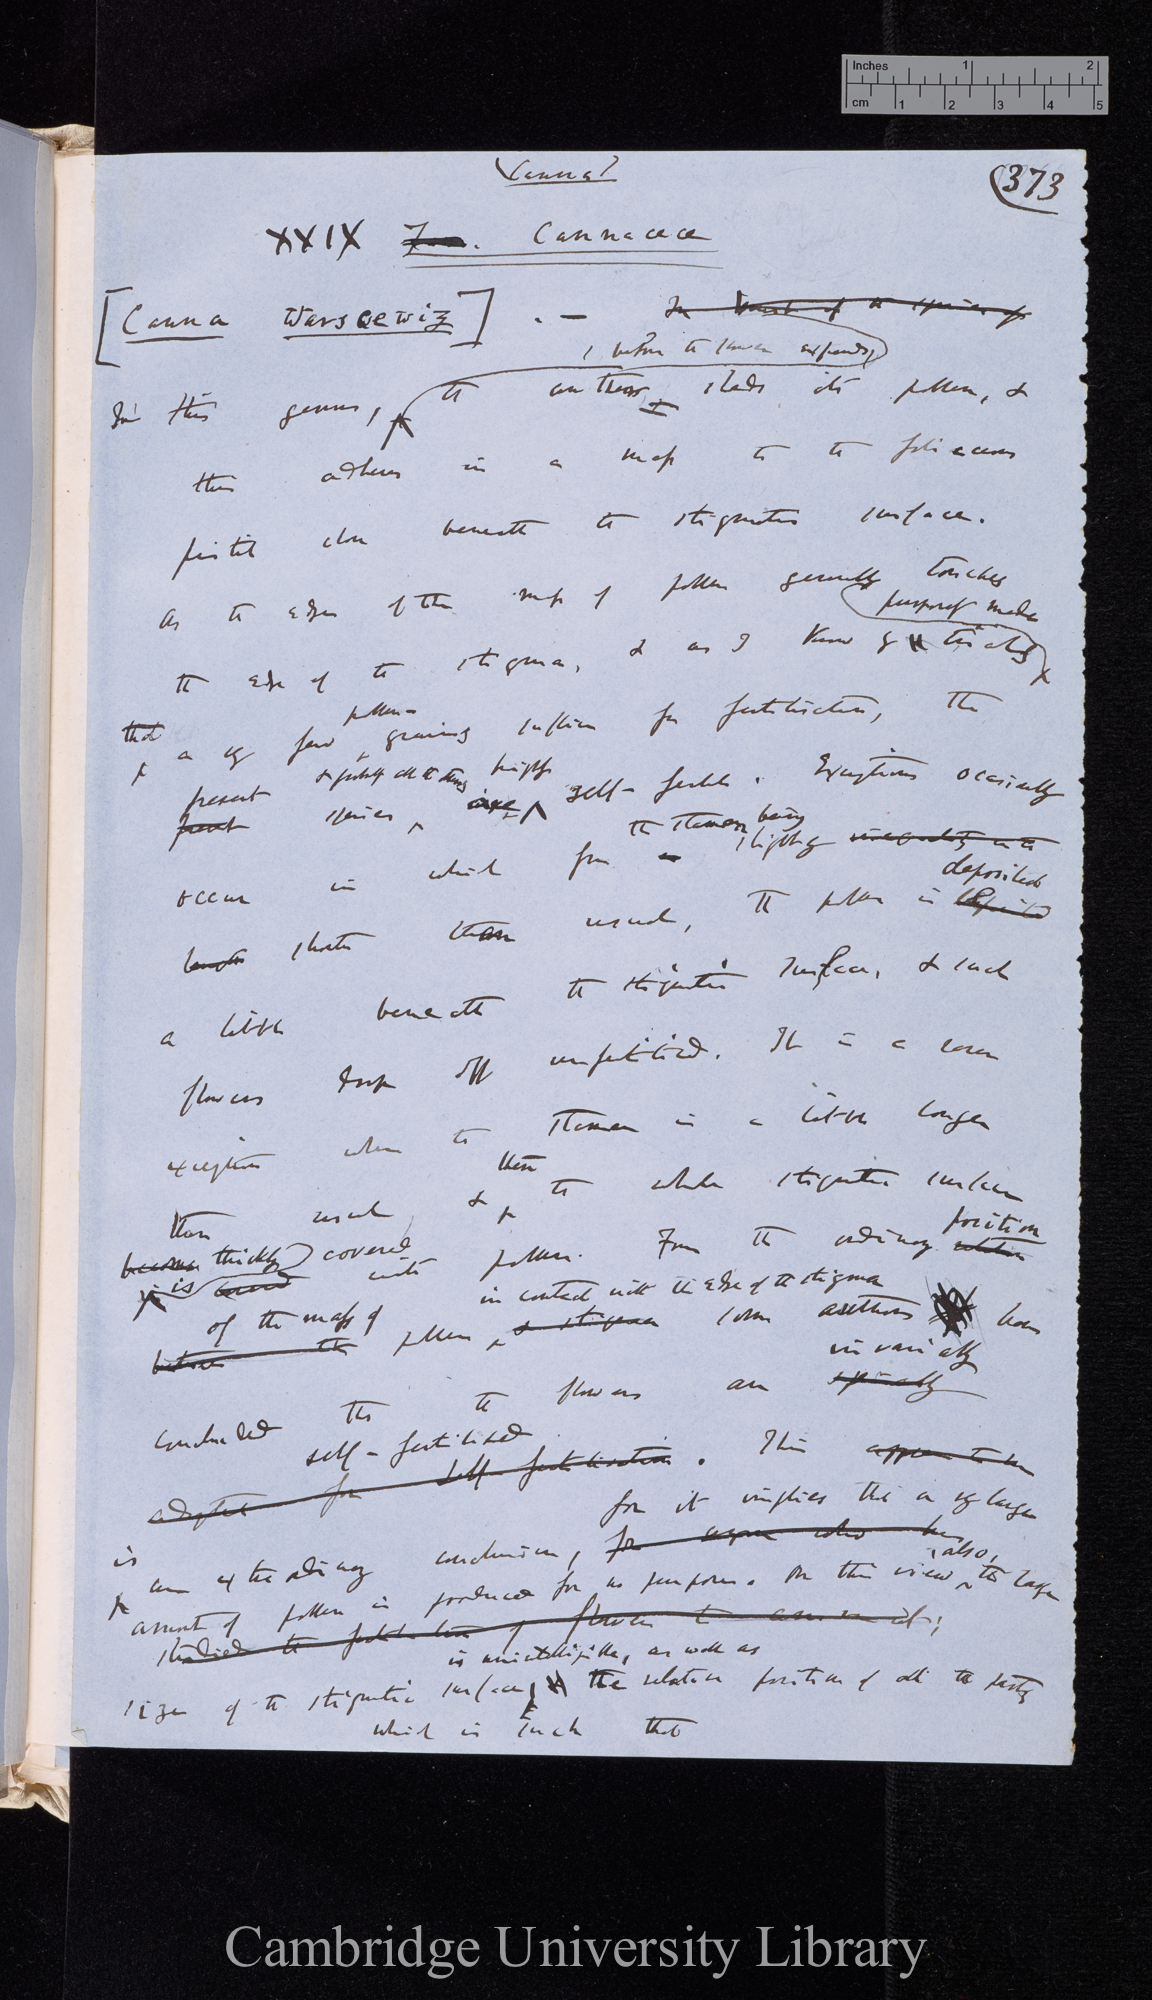 Inches 1 2
cm 1 2 3 4 5
(Canna)
(373
XXIX Fam. Cannaceæ
[Canna Warscewiz] . —
In most of the species of
, before the flower expands,
In this genus, the anthers sheds its pollen, &
this adheres in a mass to the foliaceous
pistil close beneath the stigmatic surface.
As the edge of this mass of pollen generally touches
purposely made
the edge of the stigma, & as I know by trials
that a very few pollen-grains suffice for fertilisation, the
present species, & probably all the others, are highly self-fertile. Exceptions occasionally
present
the stamen being
occur in which from slightly
deposited
length shorter than usual, the pollen is deposited
a little beneath the stigmatic surface, & such
flowers drop off unfertilised. It is a rarer
exception when the stamen is a little longer
then
than usual & the whole stigmatic surface
position
becomes thickly covered with pollen. From the ordinary relation
is covered
in contact with the edge of the stigma
of the mass of
between the pollen & stigma some authors have
invariably
concluded that the flowers are specially
self-fertilised
adapted for self-fertilisation. This appears to be
for it implies that a very large
is an extraordinary conclusion, for anyone who has
, also,
amount of pollen is produced for no purpose. On this view, the large
studied the fertilisation of flowers to assume it;
is unintelligible, as well as
size of the stigmatic surface, the relative position of all the parts,
which is such that
Cambridge University Library